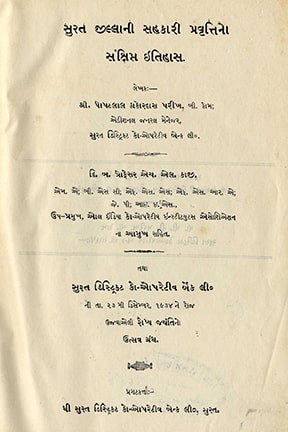 સુરત જીલ્લાની સહકારી પ્રવૃત્તિનો
સંક્ષિપ્ત ઈતિહાસ.
લેખકઃ—
શ્રી. પોપટલાલ ઠાકોરદાસ પરીખ, બી. કોમ;
એડીશનલ જનરલ મેનેજર,
સુરત ડિસ્ટ્રિક્ટ કો-ઓપરેટીવ બેન્ક લી૦.
દિ. બ. પ્રોફેસર એચ. એલ. કાજી,
એમ. એ; બી. એસ સી; એફ. એસ. એસ; એફ. આર. એ;
જે. પી; આઇ. ઇ. એસ.
ઉપ-પ્રમુખ, ઓલ ઈંડિયા કો-ઓપરેટીવ ઇન્સ્ટીટ્યુટસ એસોશિએશન
ના આમુખ સહિત.
તથા
સુરત ડિસ્ટ્રિક્ટ કો-ઓપરેટીવ બેંક લી૦
ની તા. ૨૩ મી ડિસેમ્બર, ૧૯૩૪ ને રોજ
ઉજવાએલી રૌપ્ય જયંતિનો
ઉત્સવ ગ્રંથ.
પ્રગટકર્તાઃ—
ધી સુરત ડિસ્ટ્રિક્ટ કો-ઓપરેટીવ બેન્ક લી૦, સુરત.